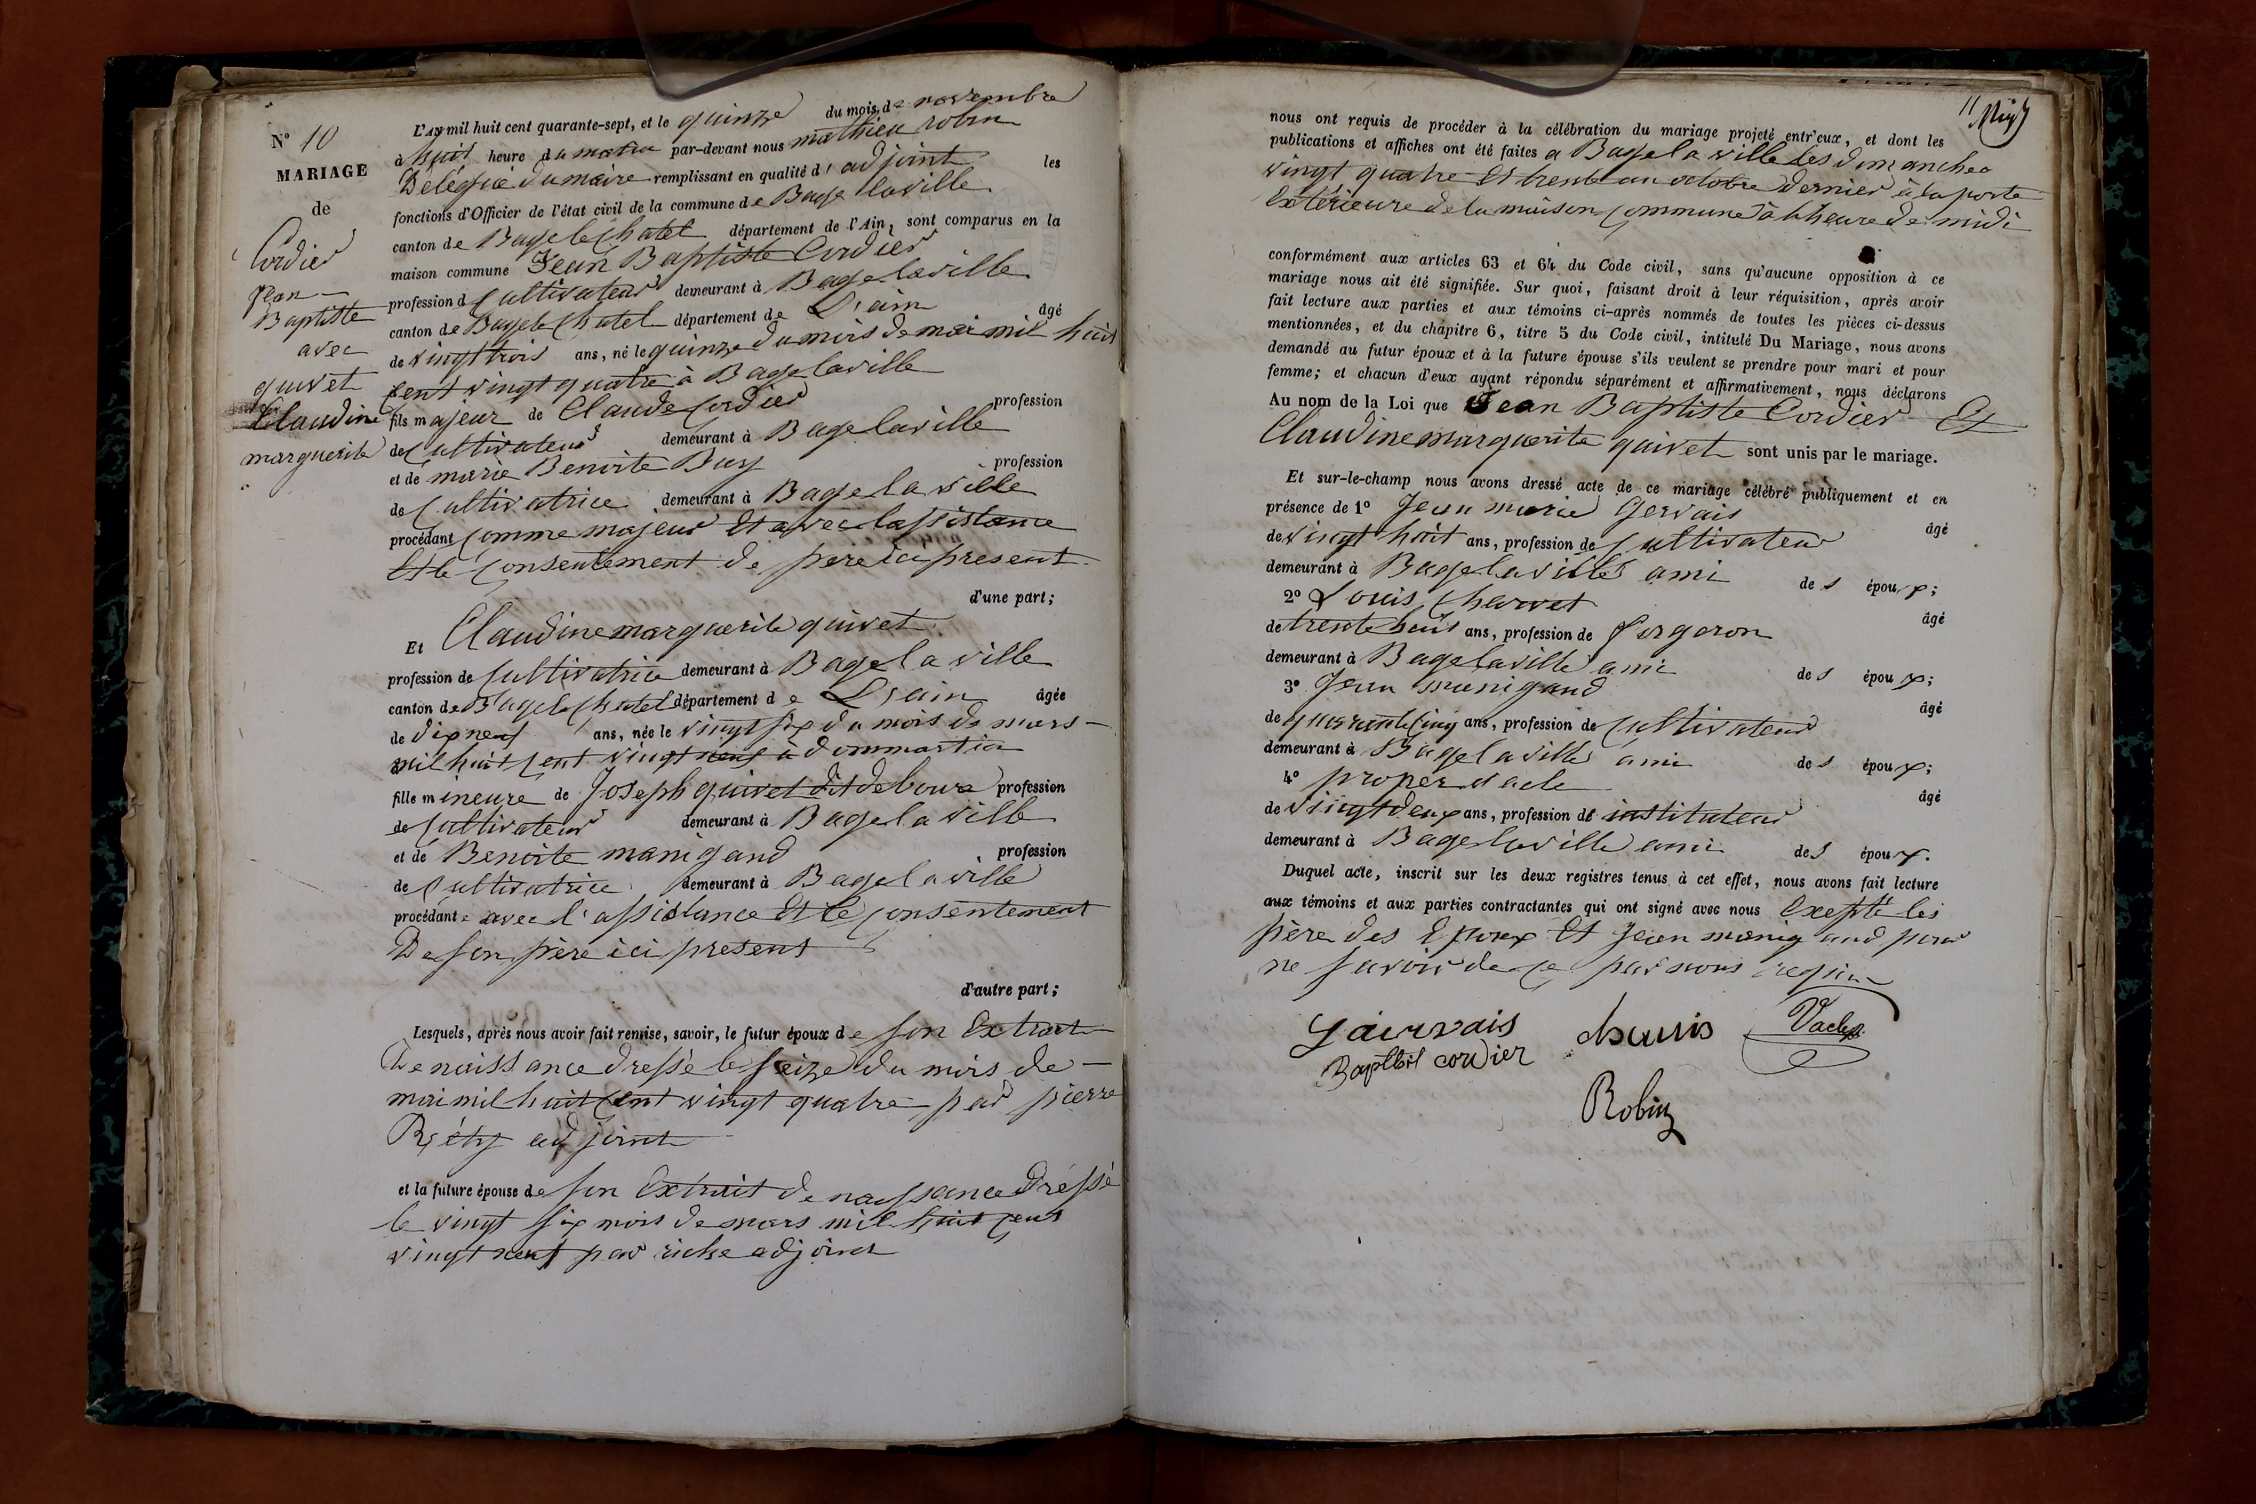 N° 10
MARIAGE
de
Cordier
jean
Baptiste
avec
quivet
Claudine
marguerite
L'AN mil huit cent quarante-sept, et le quinze du mois de novembre
à huit heure du matin par-devant nous mathieu robin
Délégué du maire remplissant en qualité d'adjoint les
fonctions d'Officier de l'état civil de la commune de Bage laville
canton de Bage le Chatel département de l'Ain, sont comparus en la
maison commune Jean Baptiste Cordier
profession d Cultivateur demeurant à Bage laville
canton de Bage le Chatel département de L'ain âgé
de vingt trois ans, né le quinze du mois de mai mil huit
Cent vingt quatre à Bage laville
fils majeur de Claude Cordier profession
de Cultivateur demeurant à Bage laville
et de marie Benoite Buy profession
de Cultivatrice demeurant à Bage la ville
procédant Comme majeur Et avec lassistance
Et le Consentement de pere ici present
d'une part;
Et Claudine marguerite quivet
profession de Cultivatrice demeurant à Bage la ville
canton de Bage le Chatel département de L'ain âgée
de dix neuf ans, née le vingt six du mois de mars
mil huit Cent vingt neuf à dommartin
fille mineure de Joseph quivet dit debour profession
de Cultivateur demeurant à Bage la ville
et de Benoite manigand profession
de Cultivatrice demeurant à Bage la ville
procédante avec l'assistance Et le Consentement
De son père ici present
d'autre part;
Lesquels, après nous avoir fait remise, savoir, le futur époux de son Extrait
De naissance dressé le seize du mois de
mai mil huit Cent vingt quatre par pierre
Réty adjoint
et la future épouse de son Extrait de naissance dréssé
le vingt six mois de mars mil huit Cent
vingt neuf par riche adjoint
11
nous ont requis de procéder à la célébration du mariage projeté entr'eux, et dont les
publications et affiches ont été faites a Bage la ville les dimanches
vingt quatre Et trente un octobre dernier à la porte
Extérieure de la maison Commune à lheure de midi
conformément aux articles 63 et 64 du Code civil, sans qu'aucune opposition à ce
mariage nous ait été signifiée. Sur quoi, faisant droit à leur réquisition, après avoir
fait lecture aux parties et aux témoins ci-après nommés de toutes les pièces ci-dessus
mentionnées, et du chapitre 6, titre 5 du Code civil, intitulé Du Mariage, nous avons
demandé au futur époux et à la future épouse s'ils veulent se prendre pour mari et pour
femme; et chacun d'eux ayant répondu séparément et affirmativement, nous déclarons
Au nom de la Loi que Jean Baptiste Cordier Et
Claudine marguerite quivet sont unis par le mariage.
Et sur-le-champ nous avons dressé acte de ce mariage célébré publiquement et en
présence de 1° Jean marie Gervais âgé
de vingt huit ans, profession de Cultivateur
demeurant à Bage la ville ami des époux;
2° Louis Charvet âgé
de trente huit ans, profession de forgeron
demeurant à Bage la ville ami des époux;
3° Jean manigand âgé
de quarante Cinq ans, profession de Cultivateur
demeurant à Bage la ville ami des époux;
4° proper vacle âgé
de vingt deux ans, profession de instituteur
demeurant à Bage la ville ami des époux.
Duquel acte, inscrit sur les deux registres tenus à cet effet, nous avons fait lecture
aux témoins et aux parties contractantes qui ont signé avec nous Exepté les
père des Epoux Et Jean manigand pour
ne savoir de ce par nous requin
Gaiurvais
Baptist cordier
Robin